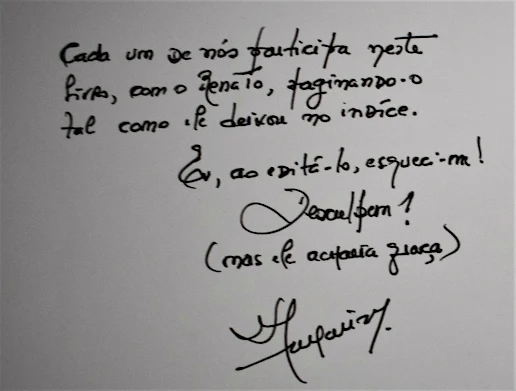 Cada um de nós participa neste
livro, com o Renato, paginando-o
tal como ele deixou no indíce.
Eu, ao editá-lo, esqueci-m!
Desculpem!
(mas ele acharia graça)